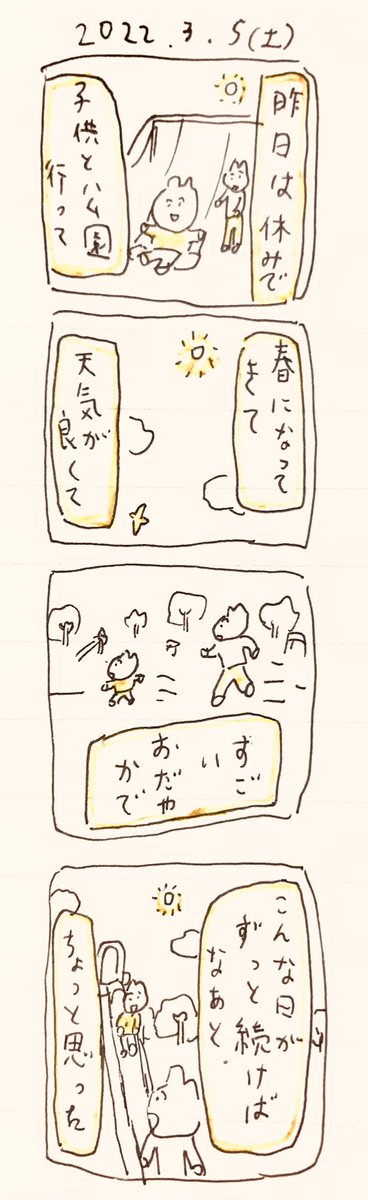 2022.3.5(土)
昨日は休みで
子供と公園
行って
春になって
きて
天気が
良くて
すご
い
おだや
かで
こんな日が
ずっと続けば
なあと
ちょっと思った